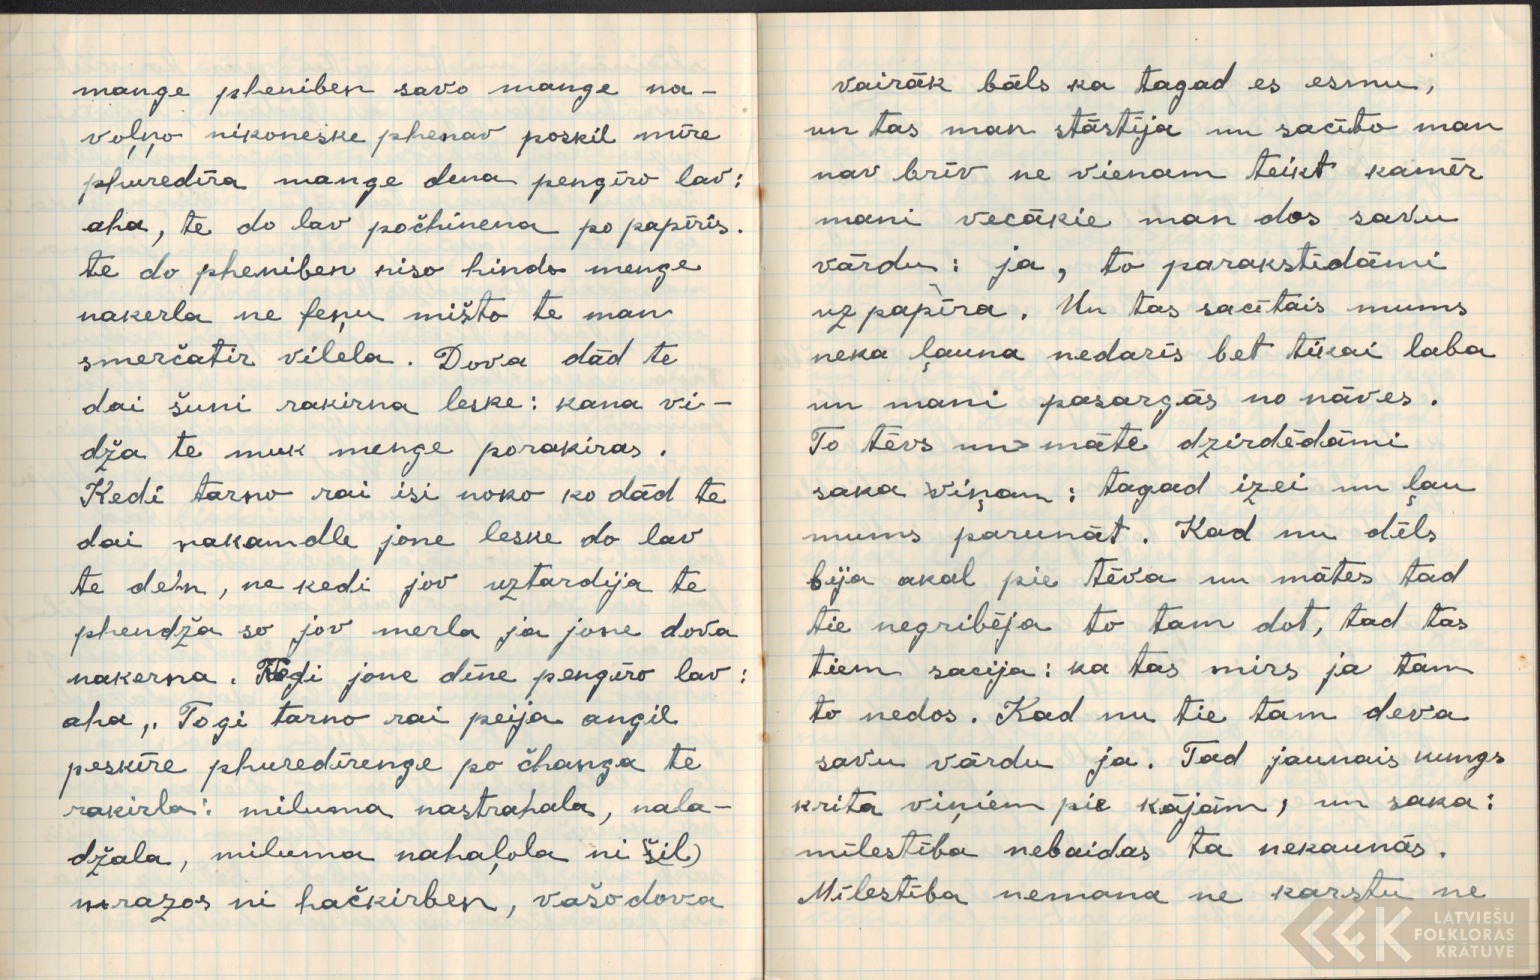 mange pheniben savo mange na-
voļņo nikoneske phenav poskil mīre
phuredīra mange dena pengīro lav:
aha, te do lav počhinena po papīris.
te do pheniben niso hindo menge
nakerla ne feņu mišto te man
smerčatir vilela. Dova dād te
dai šuni rakirna leske: kana vi-
dža te muk menge porakiras.
Kedi tarno rai isi noko ko dād te
dai nakamdle jone leske do lav
te den, ne kedi jov uztardija te
phendža so jov merla ja jone dova
nakerna. Kedi jone dīne pengīro lav:
aha,. Togi tarno rai peija angil
peskīre phuredīrenge po čhanga te
rakirla: miluma nastrahala, nala-
džala, miluma nahaļola ni šil)
mrazos ni hačkirben, vašo dova
vairāk bāls ka tagad es esmu,
un tas man stāstīja un sacīto man
nav brīv ne vienam teikt kamēr
mani vecākie man dos savu
vārdu: ja, to parakstīdāmi
uz papīra. Un tas sacītais mums
neka ļauna nedarīs bet tikai laba
un mani pasargās no nāves.
To tēvs un māte dzirdēdāmi
saka viņam: tagad izei un ļau
mums parunāt. Kad nu dēls
bija akal pie tēva un mātes tad
tie negribēja to tam dot, tad tas
tiem sacija: ka tas mirs ja tam
to nedos. Kad nu tie tam deva
savu vārdu ja. Tad jaunais kungs
krita viņiem pie kājām, un saka:
mīlestība nebaidas ta nekaunās.
Mīlestība nemana ne karstu ne
LATVIEŠU
FOLKLORAS
KRĀTUVE